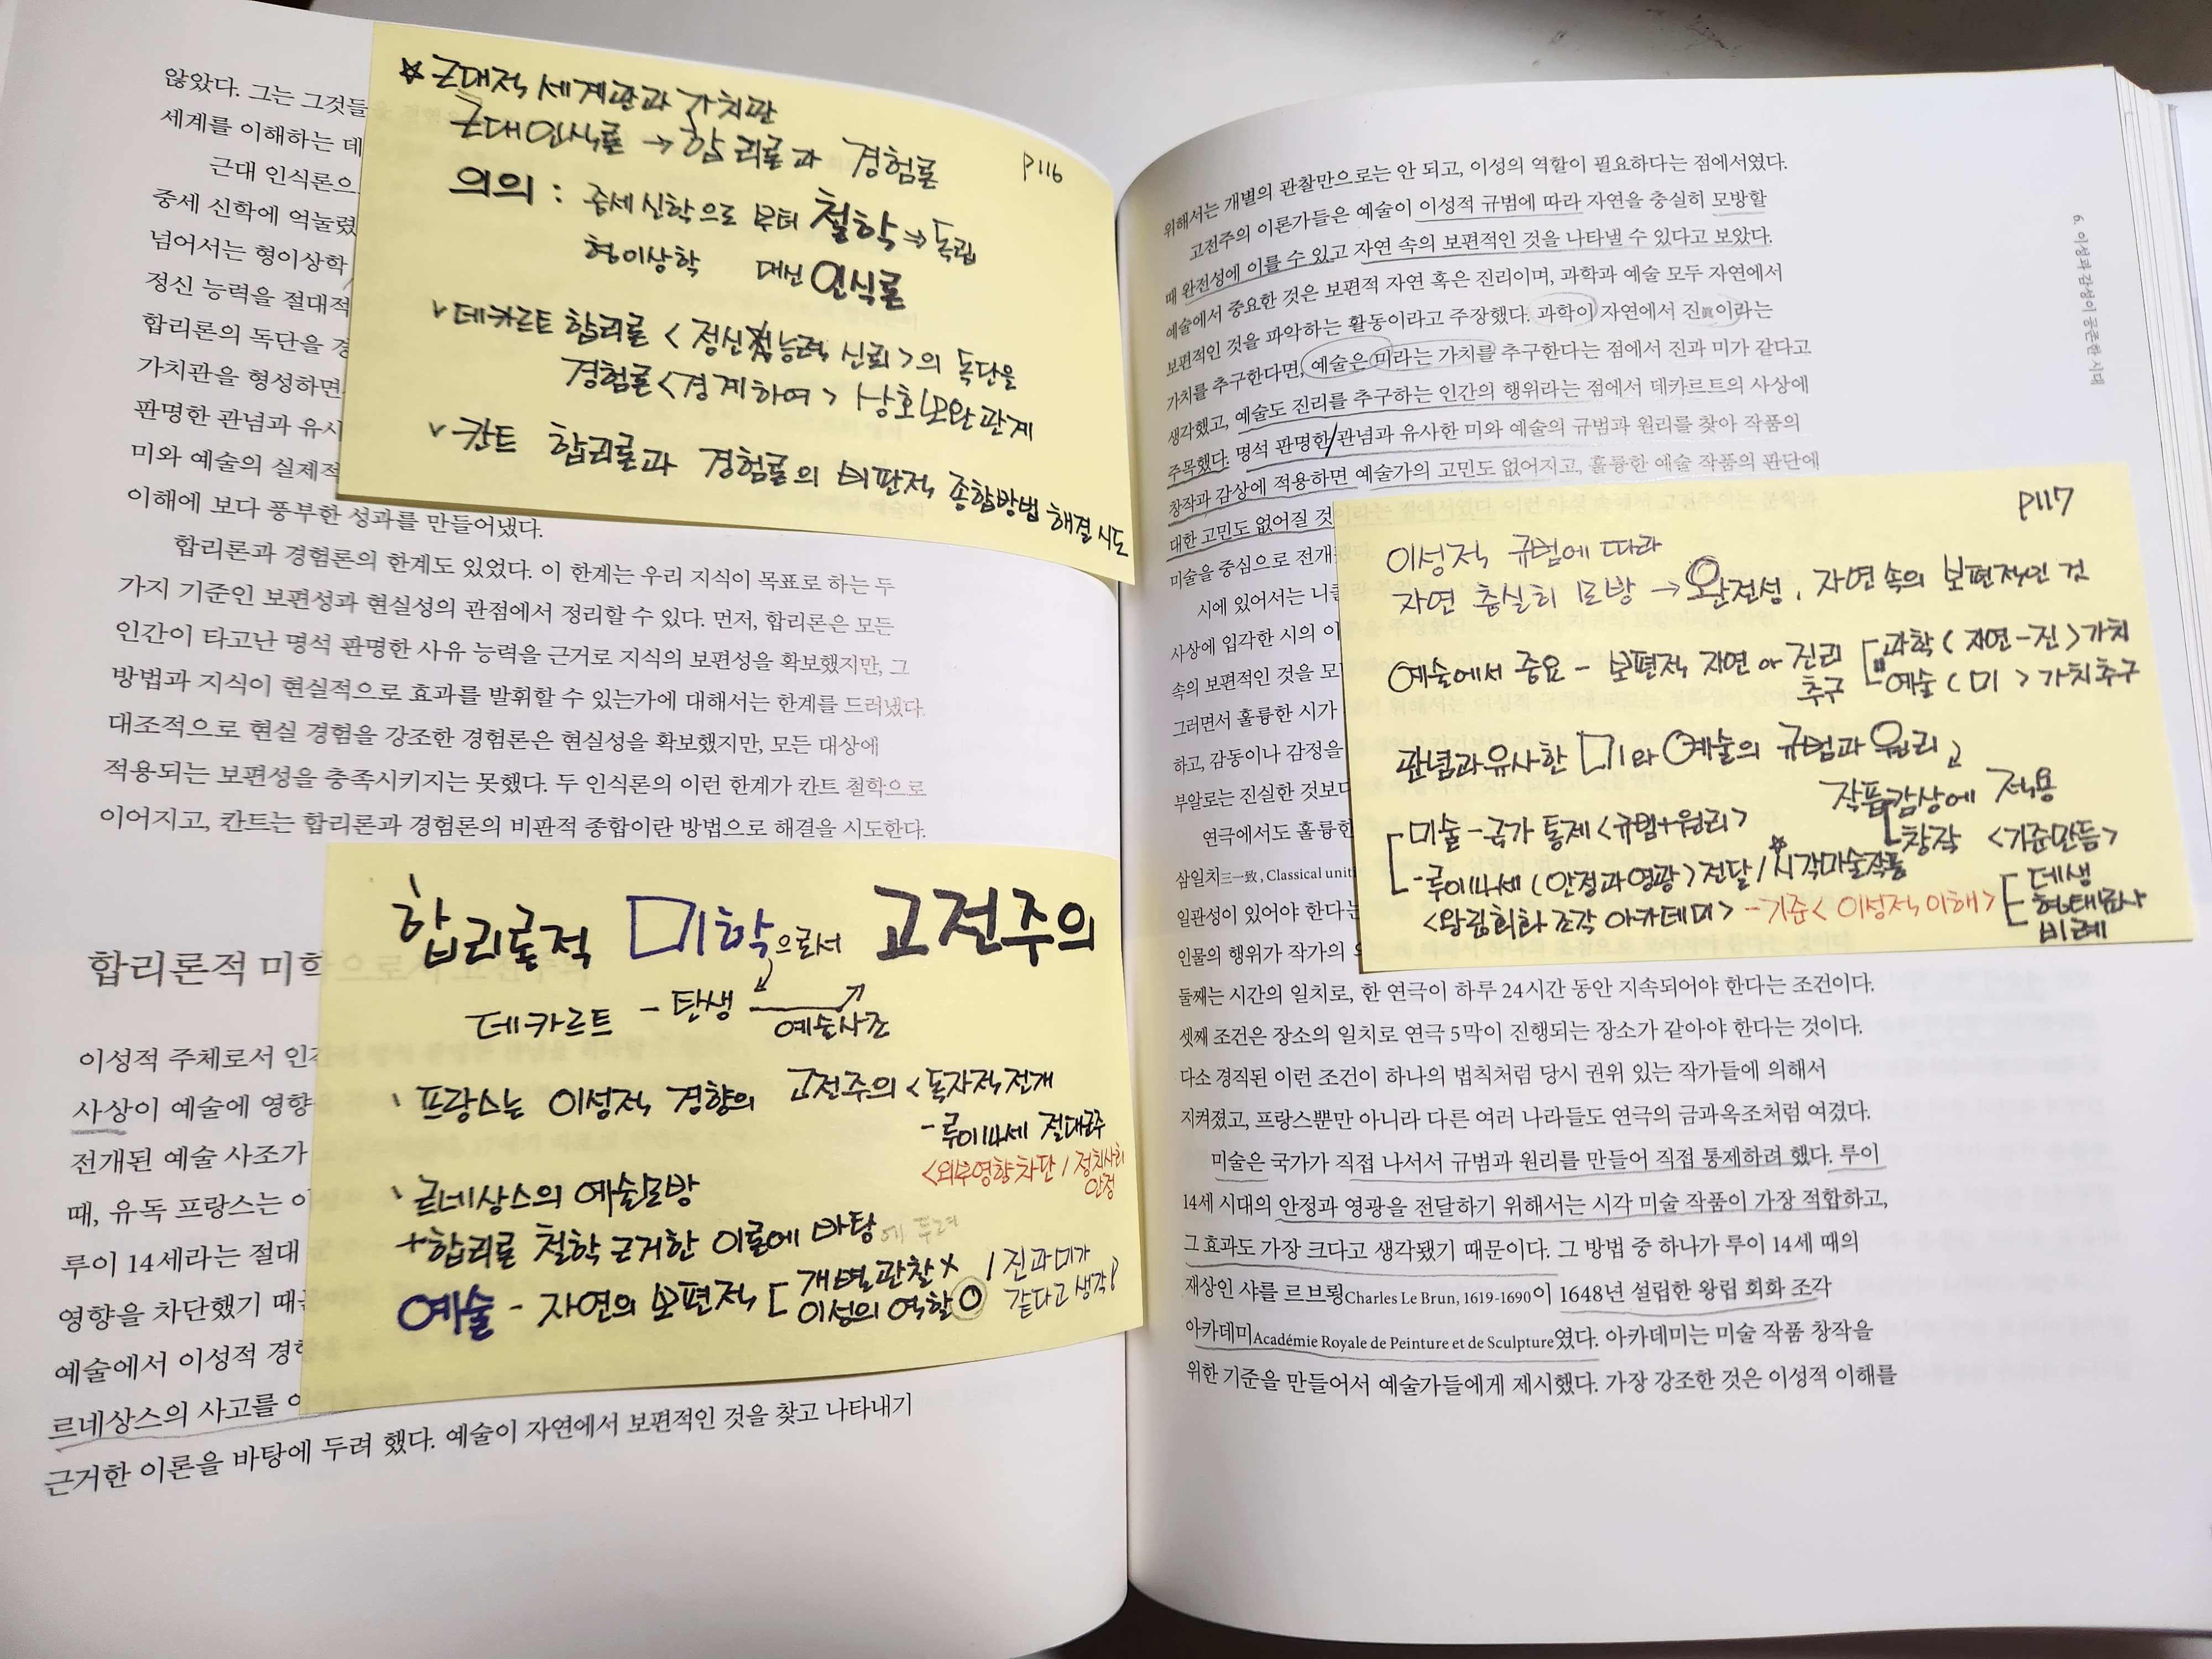 않았다. 그는 그것들
세계를 이해하는 데
근대 인식론으
중세 신학에 억눌렸
넘어서는 형이상학
정신 능력을 절대적
합리론의 독단을 경
가치관을 형성하면
판명한 관념과 유사
미와 예술의 실제적
이해에 보다 풍부한 성과를 만들어냈다.
합리론과 경험론의 한계도 있었다. 이 한계는 우리 지식이 목표로 하는 두
가지 기준인 보편성과 현실성의 관점에서 정리할 수 있다. 먼저, 합리론은 모든
인간이 타고난 명석 판명한 사유 능력을 근거로 지식의 보편성을 확보했지만, 그
방법과 지식이 현실적으로 효과를 발휘할 수 있는가에 대해서는 한계를 드러냈다.
대조적으로 현실 경험을 강조한 경험론은 현실성을 확보했지만, 모든 대상에
적용되는 보편성을 충족시키지는 못했다. 두 인식론의 이런 한계가 칸트 철학으로
이어지고, 칸트는 합리론과 경험론의 비판적 종합이란 방법으로 해결을 시도한다.
합리론적 미학으로서 고전주의
이성적 주체로서 인간
사상이 예술에 영향
전개된 예술 사조가
때, 유독 프랑스는 이
루이 14세라는 절대
영향을 차단했기 때문
예술에서 이성적 경향
르네상스의 사고를 이
근거한 이론을 바탕에 두려 했다. 예술이 자연에서 보편적인 것을 찾고 나타내기
☆ 근대적 세계관과 가치관
근대인식론 → 합리론과 경험론
P116
의의 : 중세신학으로 부터 철학 ⇒ 독립
형이상학 대신 인식론
✓ 데카르트 합리론 <정신적능력 신뢰>의 독단을
경험론 <경계하여> 상호보완관계
✓ 칸트 합리론과 경험론의 비판적 종합방법 해결시도
합리론적 미학으로서 고전주의
데카르트 - 탄생 → 예술사조
프랑스는 이성적 경향의 고전주의 <독자적전개
- 루이14세 절대군주
<외부영향차단 / 정치사회
안정
르네상스의 예술모방
+합리론 철학 근거한 이론에 바탕에 두려
예술 - 자연의 보편적 [ 개별관찰 X
이성의 역할 O
/ 진과미가
같다고 생각?
6. 이성과 감성이 공존한 시대
위해서는 개별의 관찰만으로는 안 되고, 이성의 역할이 필요하다는 점에서였다.
고전주의 이론가들은 예술이 이성적 규범에 따라 자연을 충실히 모방할
때 완전성에 이를 수 있고 자연 속의 보편적인 것을 나타낼 수 있다고 보았다.
예술에서 중요한 것은 보편적 자연 혹은 진리이며, 과학과 예술 모두 자연에서
보편적인 것을 파악하는 활동이라고 주장했다. 과학이 자연에서 진眞이라는
가치를 추구한다면, 예술은 미라는 가치를 추구한다는 점에서 진과 미가 같다고
생각했고, 예술도 진리를 추구하는 인간의 행위라는 점에서 데카르트의 사상에
주목했다. 명석 판명한 관념과 유사한 미와 예술의 규범과 원리를 찾아 작품의
창작과 감상에 적용하면 예술가의 고민도 없어지고, 훌륭한 예술 작품의 판단에
대한 고민도 없어질 것
미술을 중심으로 전개
시에 있어서는 니콜
사상에 입각한 시의 이
속의 보편적인 것을 모
그러면서 훌륭한 시가
하고, 감동이나 감정을
부알로는 진실한 것보다
연극에서도 훌륭한
삼일치三一致, Classical unit
일관성이 있어야 한다는
인물의 행위가 작가의
둘째는 시간의 일치로, 한 연극이 하루 24시간 동안 지속되어야 한다는 조건이다.
셋째 조건은 장소의 일치로 연극 5막이 진행되는 장소가 같아야 한다는 것이다.
다소 경직된 이런 조건이 하나의 법칙처럼 당시 권위 있는 작가들에 의해서
지켜졌고, 프랑스뿐만 아니라 다른 여러 나라들도 연극의 금과옥조처럼 여겼다.
미술은 국가가 직접 나서서 규범과 원리를 만들어 직접 통제하려 했다. 루이
14세 시대의 안정과 영광을 전달하기 위해서는 시각 미술 작품이 가장 적합하고,
그 효과도 가장 크다고 생각됐기 때문이다. 그 방법 중 하나가 루이 14세 때의
재상인 샤를 르브룅Charles Le Brun, 1619-1690이 1648년 설립한 왕립 회화 조각
아카데미Académie Royale de Peinture et de Sculpture였다. 아카데미는 미술 작품 창작을
위한 기준을 만들어서 예술가들에게 제시했다. 가장 강조한 것은 이성적 이해를
P117
이성적 규범에 따라
자연 충실히 모방 → 완전성, 자연속의 보편적인 것
예술에서 중요 - 보편적 자연 아 진리
추구
과학 (자연-진>가치
예술 (미 > 가치추구
관념과유사한 미와 예술의 규범과 원리
작품감상에 적용
창작 <기준만듬>
미술 - 국가 통제 <규범+원리>
- 루이14세 (안정과영광>전달 / ☆시각미술작품
<왕립회화 조각 아카데미> - 기준 <이성적 이해>
데생
형태묘사
비례